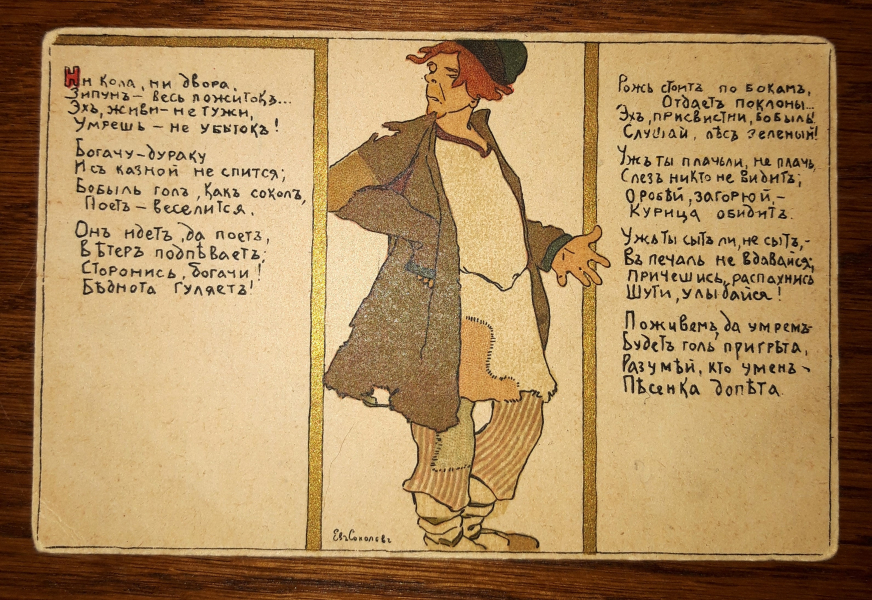 Ни кола, ни двора,
Зипунъ — весь пожитокъ...
Эхъ, живи — не тужи,
Умрешь — не убытокъ!
Богачу-дураку
И съ казной не спится;
Бобыль голъ, какъ соколъ,
Поетъ — веселится.
Онъ идетъ, да поетъ,
Вѣтеръ подпѣваетъ;
Сторонись, богачи!
Бѣднота гуляетъ!
Рожь стоитъ по бокамъ,
Отдаетъ поклоны...
Эхъ, присвистни, бобыль!
Слушай, лѣсъ зеленый!
Ужъ ты плачь ли, не плачь,
Слезъ никто не видитъ;
Оробѣй, загорюй, —
Курица обидитъ.
Ужъ ты сытъ ли, не сытъ, —
Въ печаль не вдавайся;
Причешись, распахнись
Шути, улыбайся!
Поживемъ, да умремъ —
Будетъ голь пригрѣта,
Разумѣй, кто уменъ —
Пѣсенка допѣта.
Евг Соколовъ